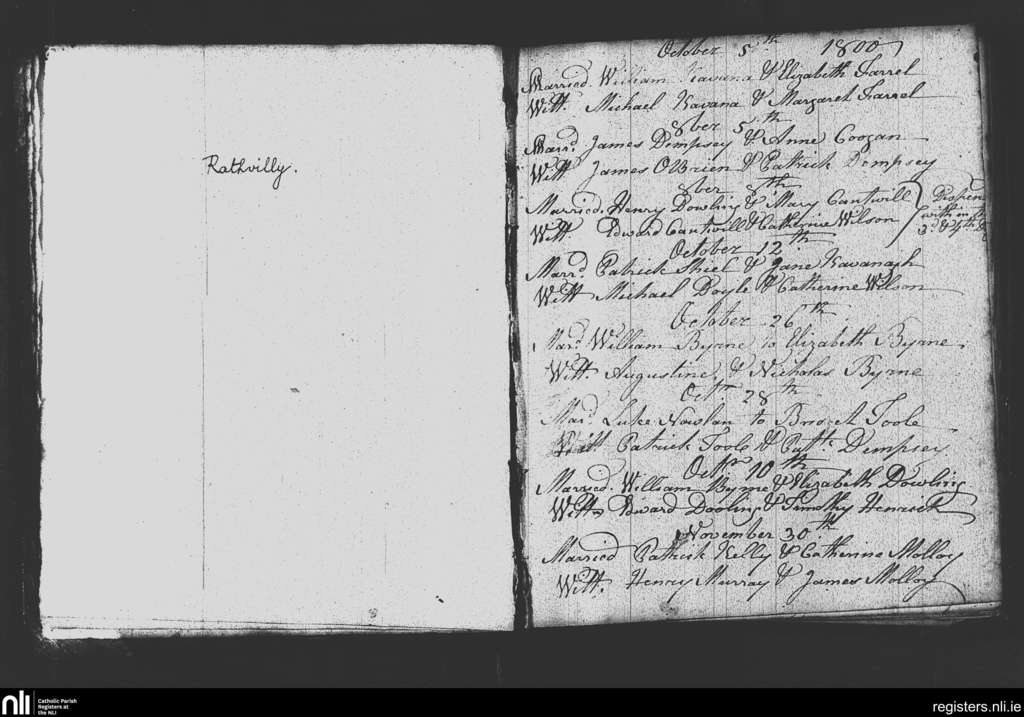 Rathvilly.
October 5th 1800
Married. William Kavana & Elizabeth Farrel
Witt. Michael Kavana & Margaret Farrel
8ber 5th
Marrd. James Dempsey & Anne Coogan
Witt James OBrien & Patrick Dempsey
8ber 8th
Married. Henry Dowling & Mary Cantwill
Witt Edward Cantwill & Catherine Wilson
Dispen
with in
3d & 4th
October 12th
Marrd. Patrick Shiel & Jane Kavanagh
Witt Michael Doyle & Catherine Wilson
October 26th
Mard. William Byrne to Elizabeth Byrne.
Witt. Augustine & Nicholas Byrne
Octr 28th
Mard. Luke Nowlan to Bridget Toole
Witt Patrick Toole & Patt. Dempsey
Octr 10th
Married. William Byrne & Elizabeth Dowling
Witts Edward Dooling & Timothy Henrick
November 30th
Married Patrick Kelly & Catherine Molloy
Witt. Henry Murray & James Molloy
nli
Catholic Parish
Registers at
the NLI
registers.nli.ie